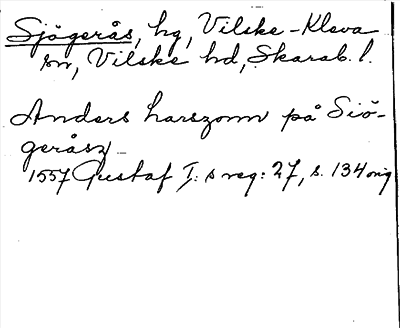 Sjögerås, hg, Vilske-Kleva
sn, Vilske hd, Skarab. l.
Anders harszonn på Siö-
geråsz
1557 Gustaf I:s reg: 27, s. 134 orig